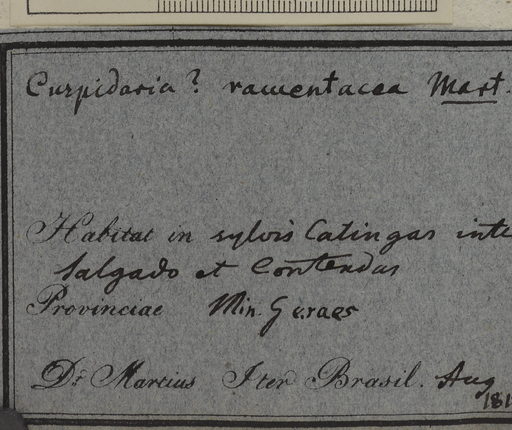 Cuspidaria? ramentacea Mart.
Habitat in sylvis Catingas inte
Salgado et Contendas
Provinciae Min. Geraes
Dr. Martius Iter Brasil. Aug
181